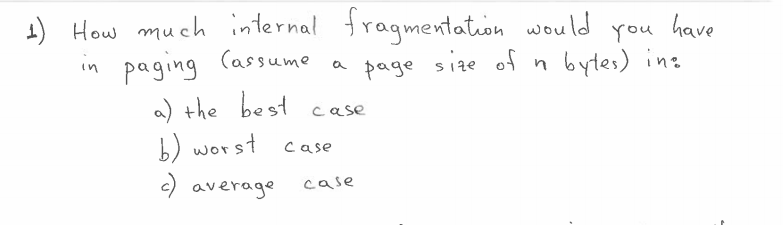 1) How much internal fragmentation would you have
in paging (assume a page size of n bytes) in:
a) the best case
b) worst case
c) average case